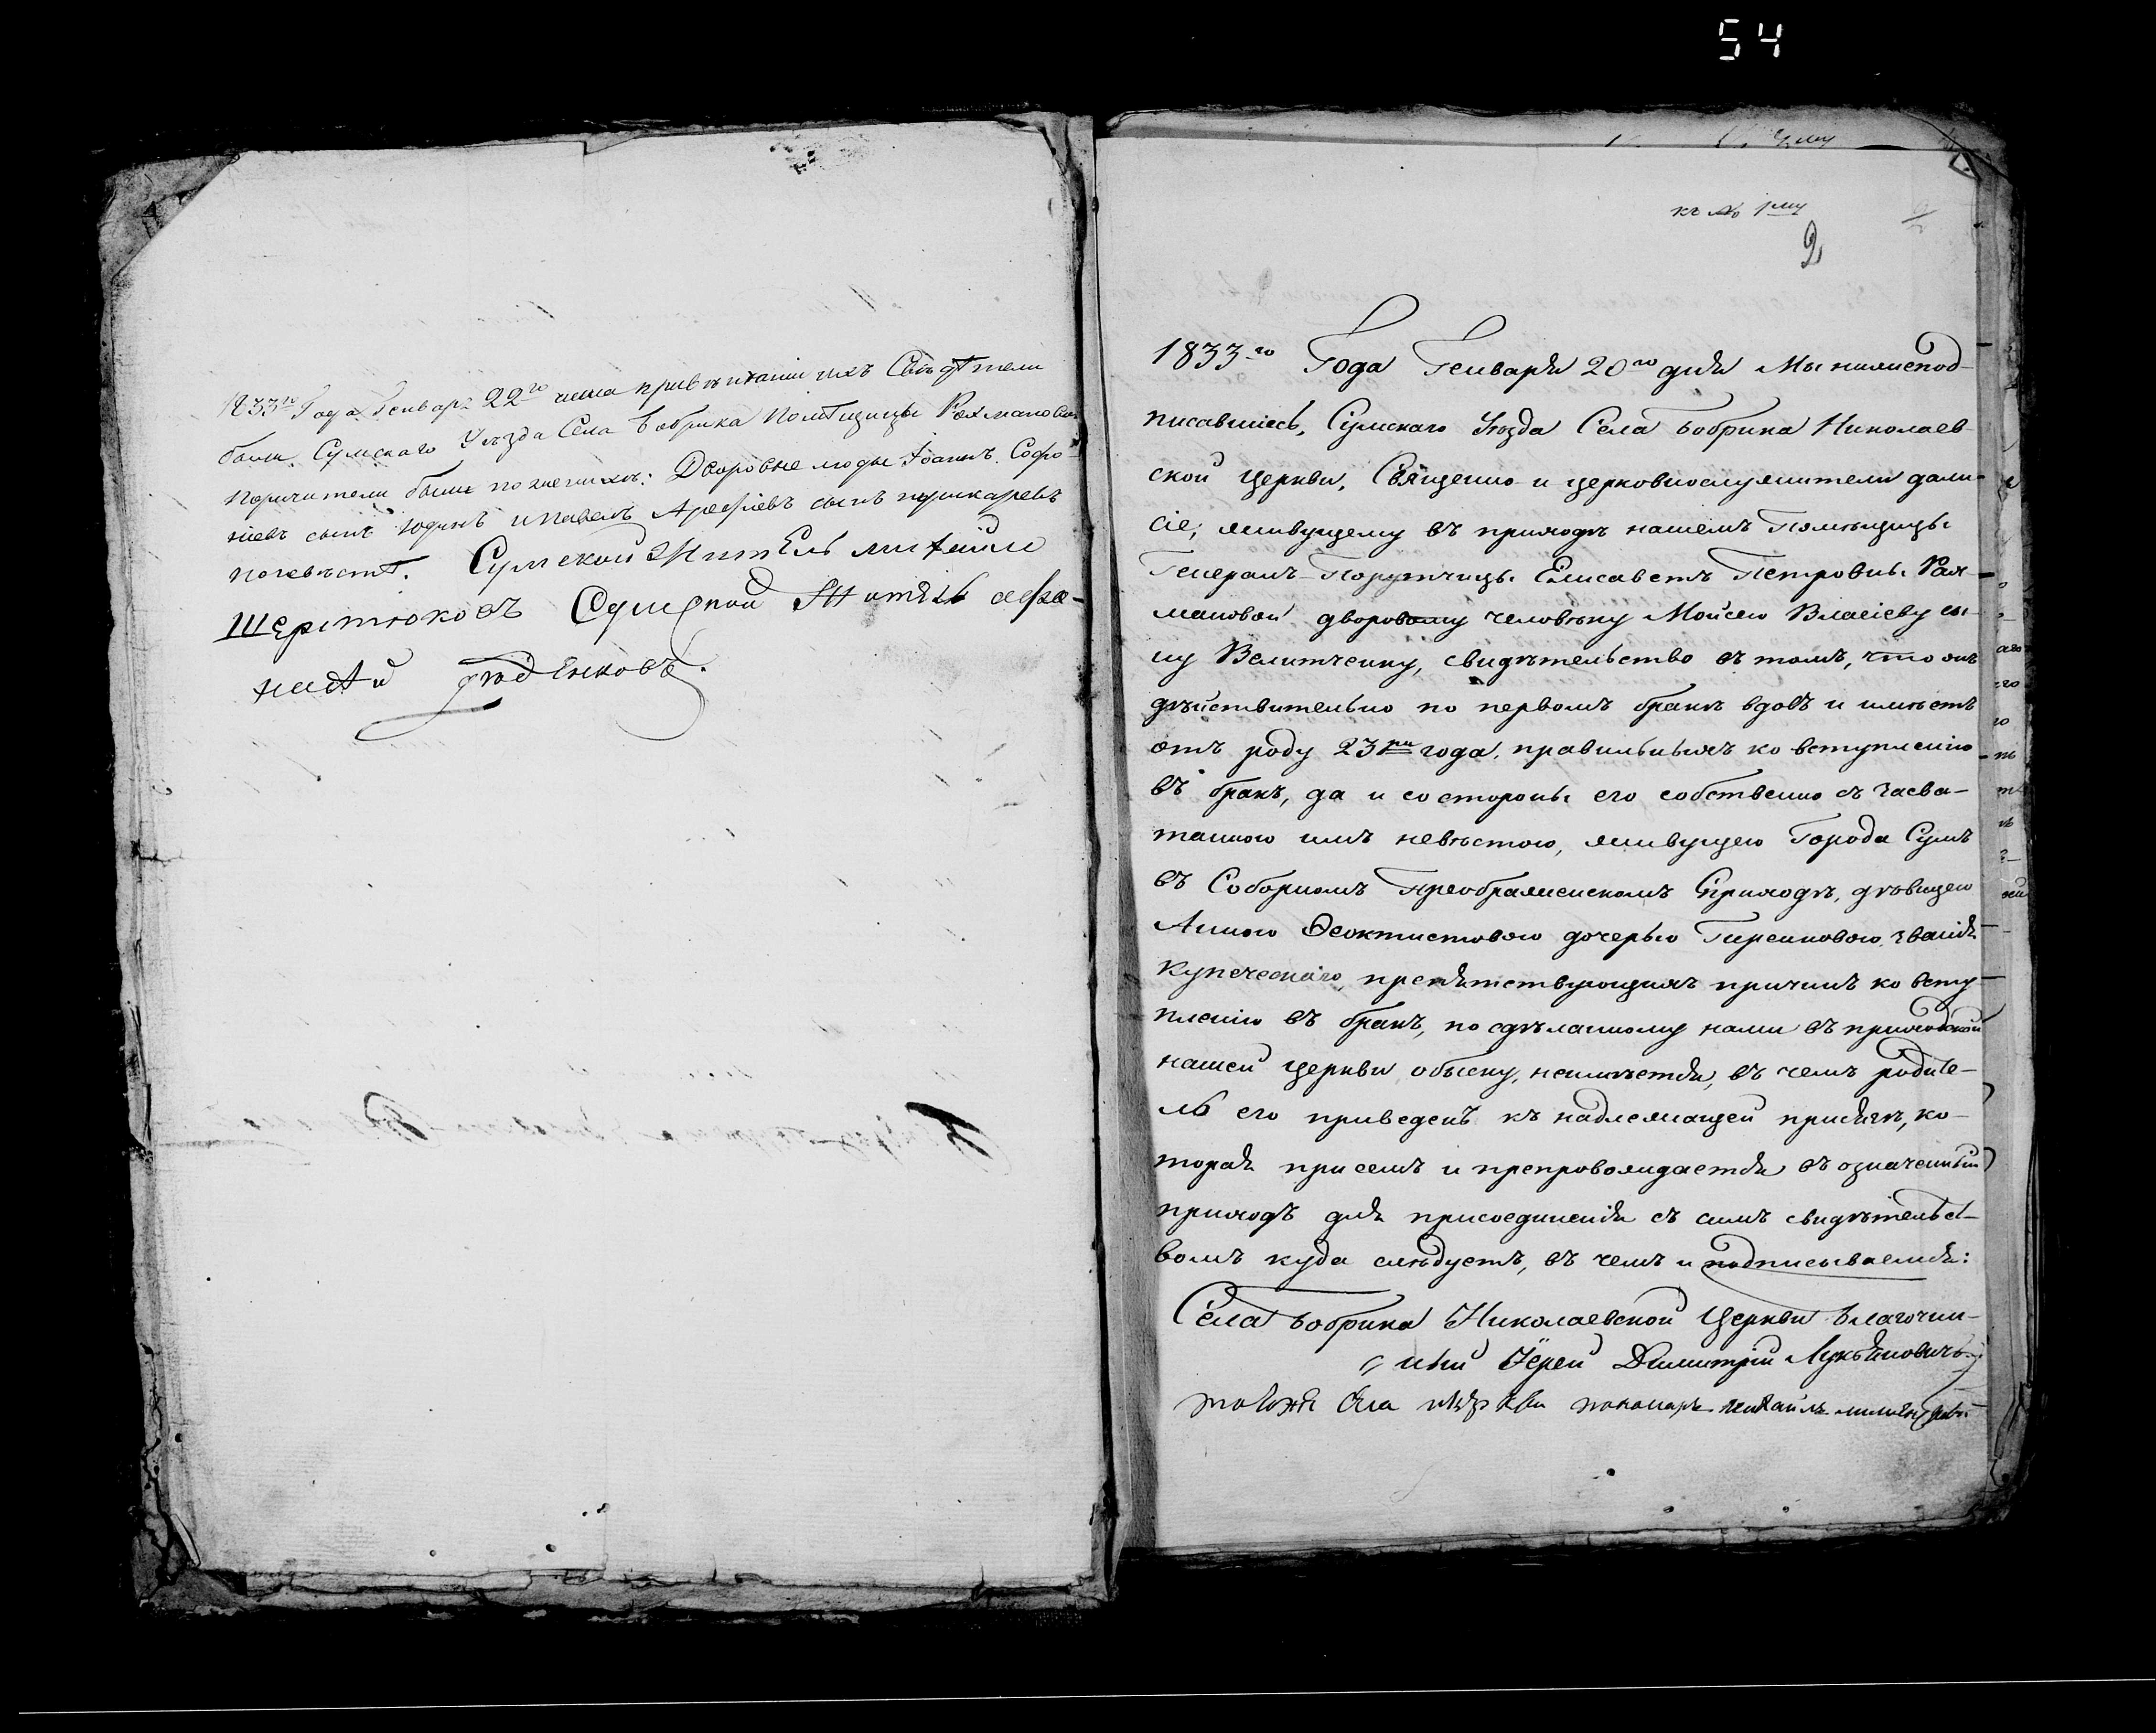 54
1833го Года Генвар: 22го числа при венчаніи ихъ Свидѣтели
были Сумского Уѣзда Села Бобрика Помѣщицы Рахмановой
поручители были по женихѣ: Дворовые люды Іоаннъ Софро-
ніевъ сынъ Юдинъ и Павелъ Арефіевъ сынъ пушкаревъ
по невѣстѣ. Сумской Житель михайло
Шерстюковъ Сумской Житель афа-
насій
къ № 1му
2
1833го Года Генваря 20го дня Мы нижепод-
писавшіесь, Сумскаго Уѣзда Села Бобрика Николаев-
ской церкви, Священно и церковнослужители дали
сіе; живущему въ приходѣ нашемъ Помѣщицы
Генералъ-Порутчицы Елисаветы Петровны Рах-
мановой дворовому человѣку Мойсею Власіеву сы-
ну Величенку, свидѣтельство въ томъ, что онъ
дѣйствительно по первомъ бракѣ вдовъ и имѣетъ
отъ роду 23ри года, правильныхъ ко вступленію
въ бракъ, да и со стороны его собственно съ засва-
танною имъ невѣстою, живущею Города Сумъ
въ Соборномъ Преображенскомъ приходѣ, дѣвицею
Анною Ѳеоктистовою дочерью Гиренковою званія
Купеческаго, препятствующихъ причинъ ко всту-
пленію въ бракъ, по сдѣланному нами въ приходской
нашей церкви обыску, неимѣется, въ чемъ родите-
ль его приведенъ къ надлежащей присягѣ, ко-
торая при семъ и препровождается въ означенный
приходъ для присоединенія съ симъ свидѣтельст-
вомъ куда слѣдуетъ, въ чемъ и подписываемся:
Села Бобрика Николаевской Церкви Благочин-
ный Іерей Димитрій Лукьяновичъ
тоейже пономарь михаилъ